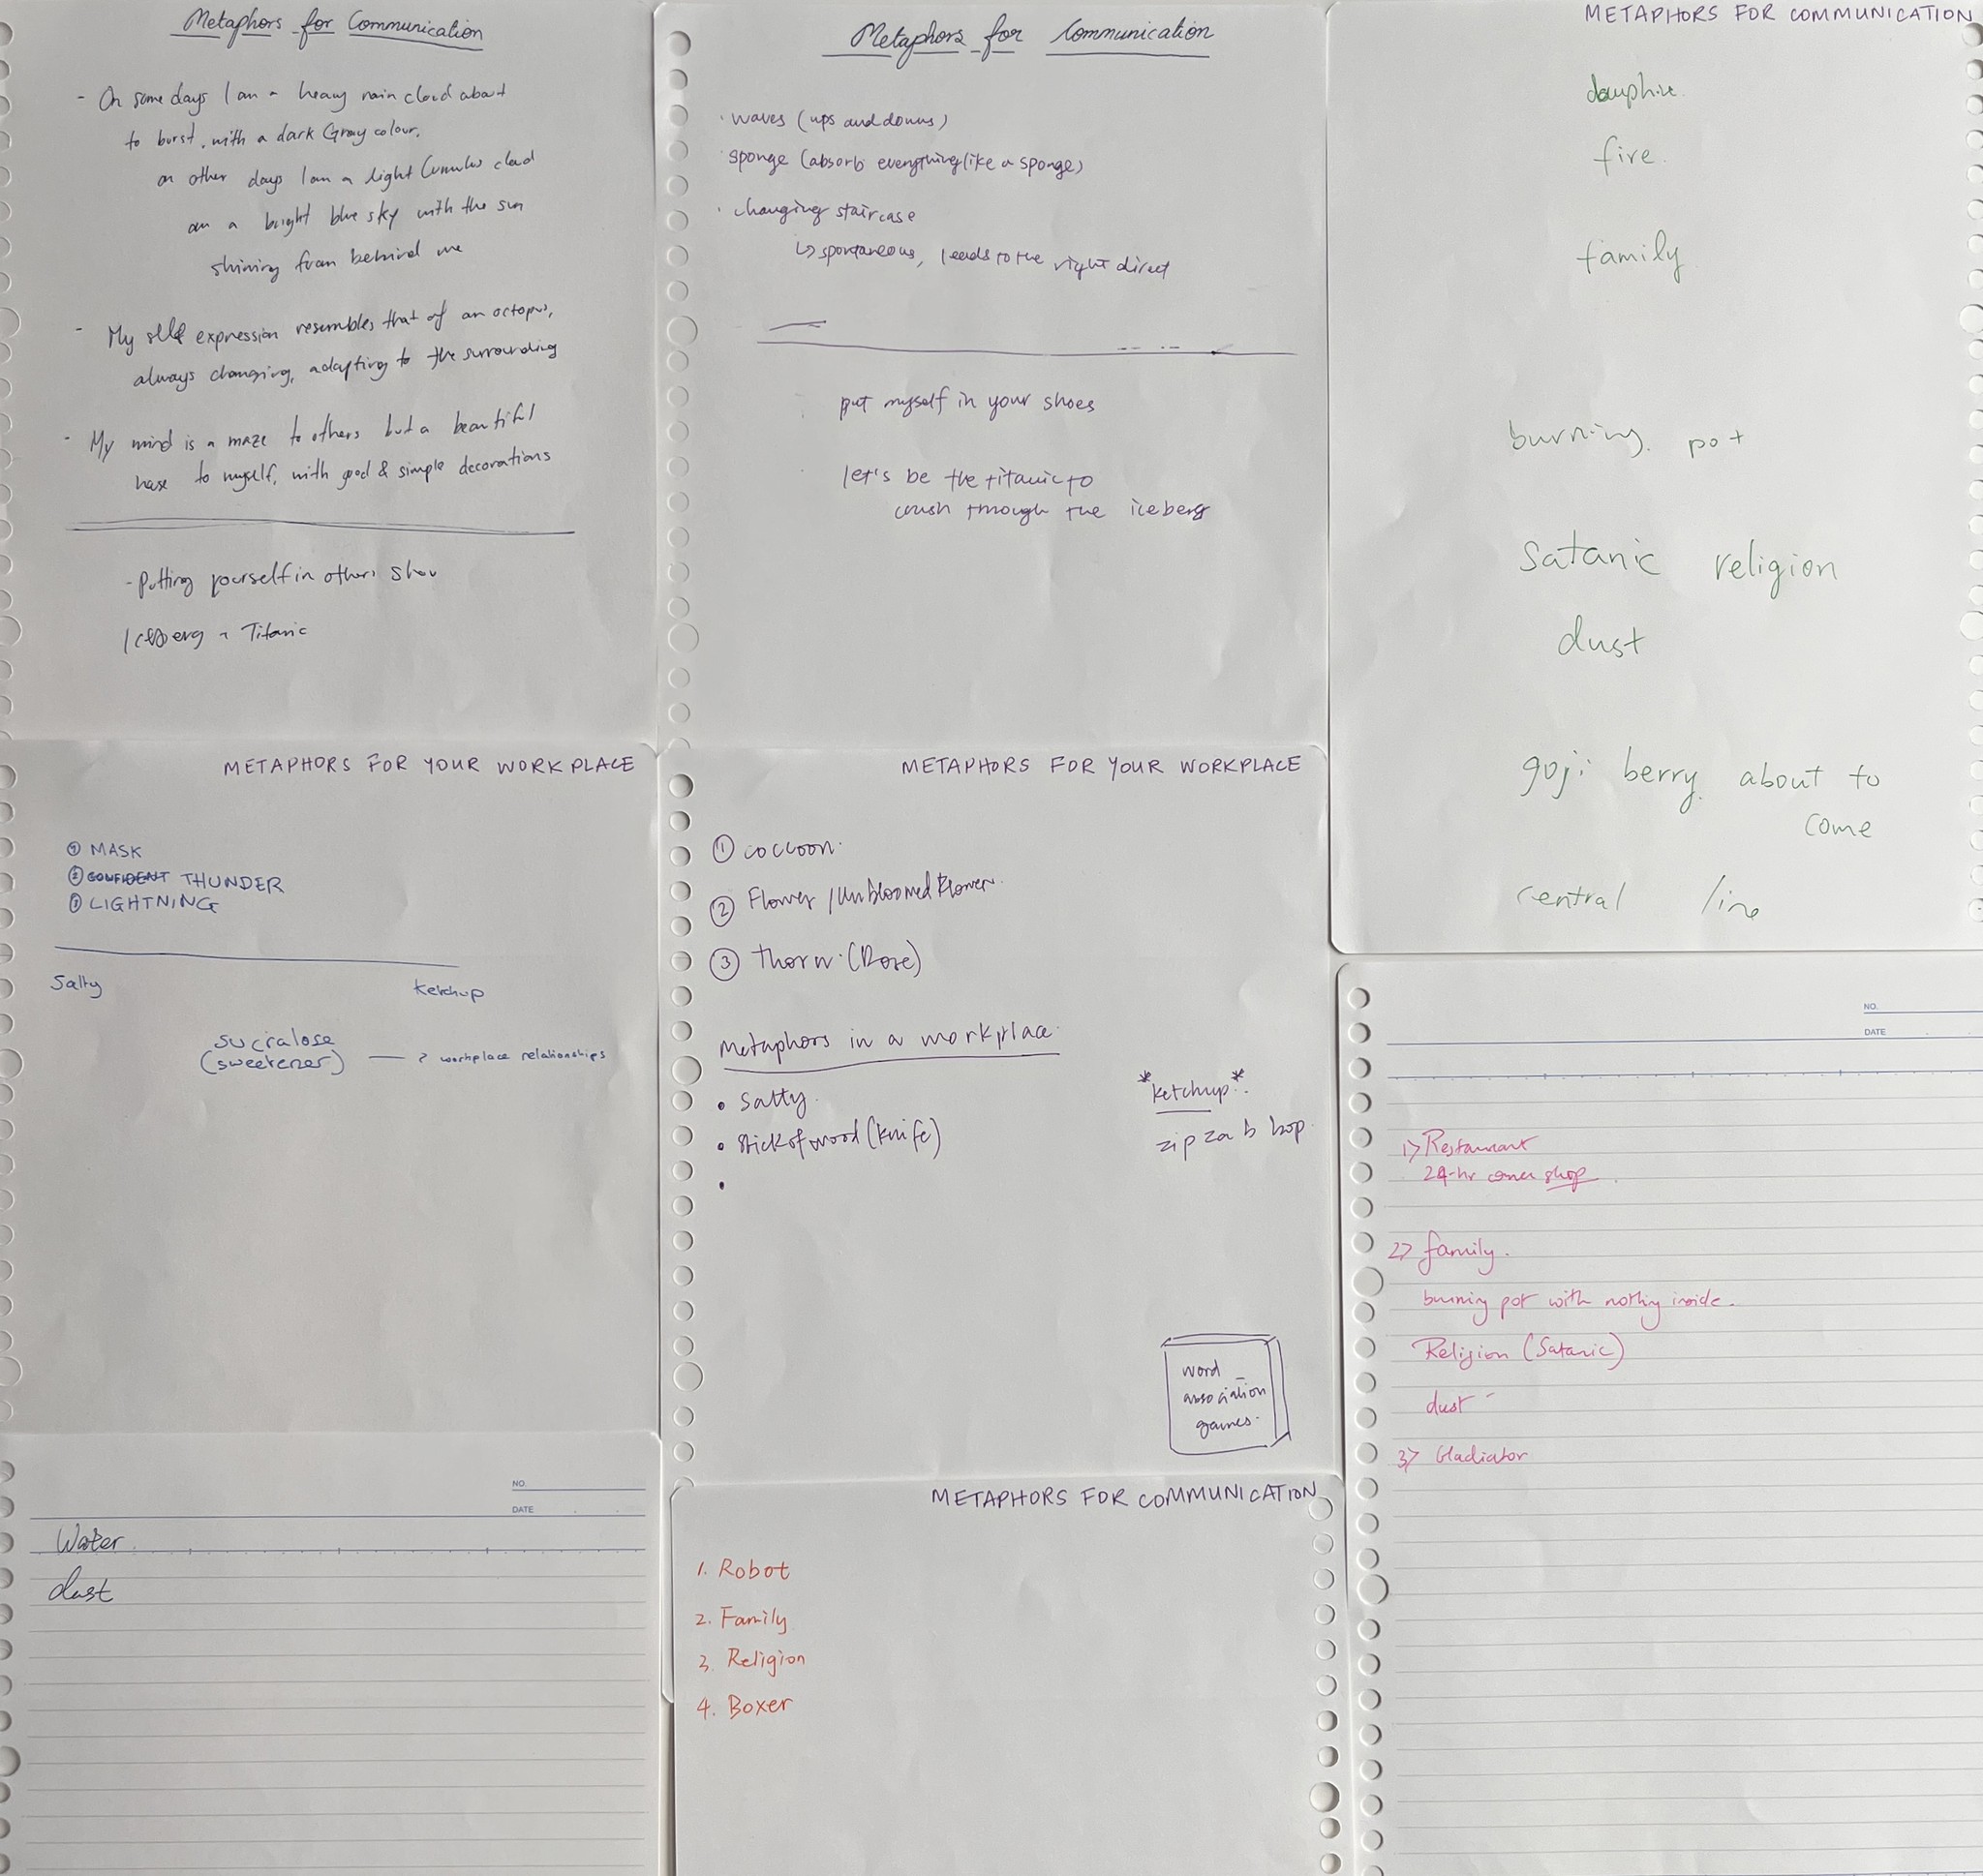 Metaphors for Communication
- On some days I am a heavy rain cloud about
to burst, with a dark Gray colour,
on other days I am a light Cumulus cloud
on a bright blue sky with the sun
shining from behind me
- My self expression resembles that of an octopus,
always changing, adapting to the surrounding
- My mind is a maze to others but a beautiful
to myself, with good & simple decorations
- Putting yourself in others
Iceberg Titanic
Metaphors for Communication
· waves (ups and downs)
· sponge (absorb everything like a sponge)
· changing staircase
↳ spontaneous, leads to the right direct
put myself in your shoes
let's be the titanic to
crush through the iceberg
METAPHORS FOR COMMUNICATION
fire.
family
burning. pot
Satanic religion
dust
goji berry about to
come
central line
METAPHORS FOR YOUR WORK PLACE
① MASK
② CONFIDENT THUNDER
③ LIGHTNING
Salty Ketchup
sucralose
(sweetener) — ? workplace relationships
METAPHORS FOR YOUR WORKPLACE
① coccoon.
② Flower / Unbloomed Flower.
③ Thorn. (Rose)
Metaphors in a workplace.
• Salty
• stick of wood (knife)
•
*ketchup*.
zip zab bop
word
association
games.
NO.
DATE
1> Restaurant
24-hr corner shop
2> family.
burning pot with nothing inside.
Religion (Satanic)
dust
3> Gladiator
NO.
DATE
Water
dust
METAPHORS FOR COMMUNICATION
1. Robot
2. Family
3. Religion
4. Boxer